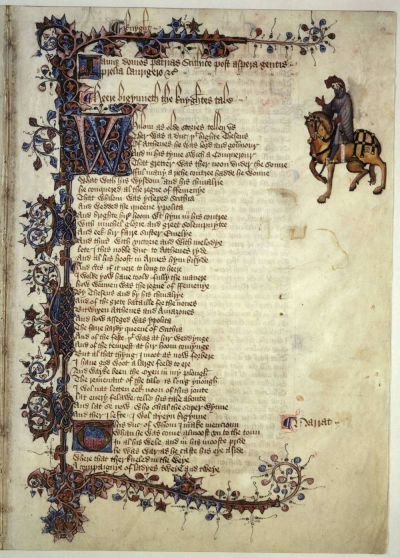 Knyght
Iamque domos patrias Scithice post aspera gentis
prelia laurigero &c
Heere bigynneth the knyghtes tale
Whilom as olde stories tellen us
Ther was a duc þt highte Theseus
Of Atthenes he was lord and gouernour
And in his tyme swich a conquerour
That gretter was ther noon vnder the sonne
Ful many a riche contree hadde he wonne
What with his wysdom and his chiualrie
He conquered al the regne of Femenye
That whilom was ycleped Scithia
And wedded the queene ypolita
And broghte hir hoom wt hym in his contree
With muchel glorie and greet solempnytee
And eek hir faire suster Emelye
And thus with victorie and with melodye
Lete I this noble duc to Atthenes ryde
And al his hoost in Armes hym bisyde
And certes if it nere to long to heere
I wolde yow haue toold fully the manere
How wonnen was the regne of Femenye
By Theseus and by his chiualrye
And of the grete bataille for the nones
Bitwixen Atthenes and Amazones
And how asseged was ypolita
The faire hardy queene of Scithia
And of the feste þt was at hir weddynge
And of the tempest at hir hoom comynge
But al that thyng I moot as now forbere
I haue god woot a large feeld to ere
And wayke been the oxen in my plough
The remenant of the tale is long ynough
I wol nat letten eek noon of this route
Lat euery felawe telle his tale aboute
And lat se now who shal the soper wynne
And ther I lefte I wol ayeyn bigynne
This duc of whom I make mencioun
Narrat
Whan he was come almoost vn to the toun
In al his wele and in his mooste pride
He was war as he caste his eye aside
Where that ther kneled in the weye
A compaignye of ladyes tweye and tweye